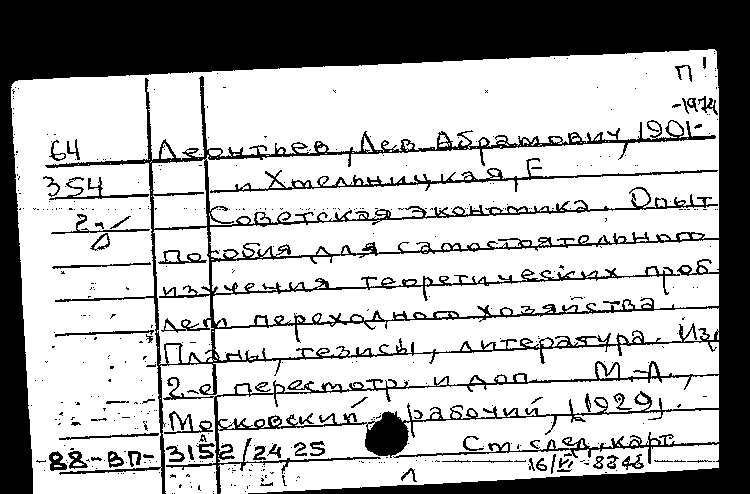 П!
-1974
64 Леонтьев, Лев Абрамович, 1901-
354 и Хмельницкая, Е
2
Советская экономика. Опыт
пособия для самостоятельного
изучения теоретических проб
лем переходного хозяйства.
Планы, тезисы, литература. Изд
2-е пересмотр. и доп. М.-Л.,
Московский рабочий, [1929].
88-ВП-3152/24,25 Ст. след. карт.
16/VI-